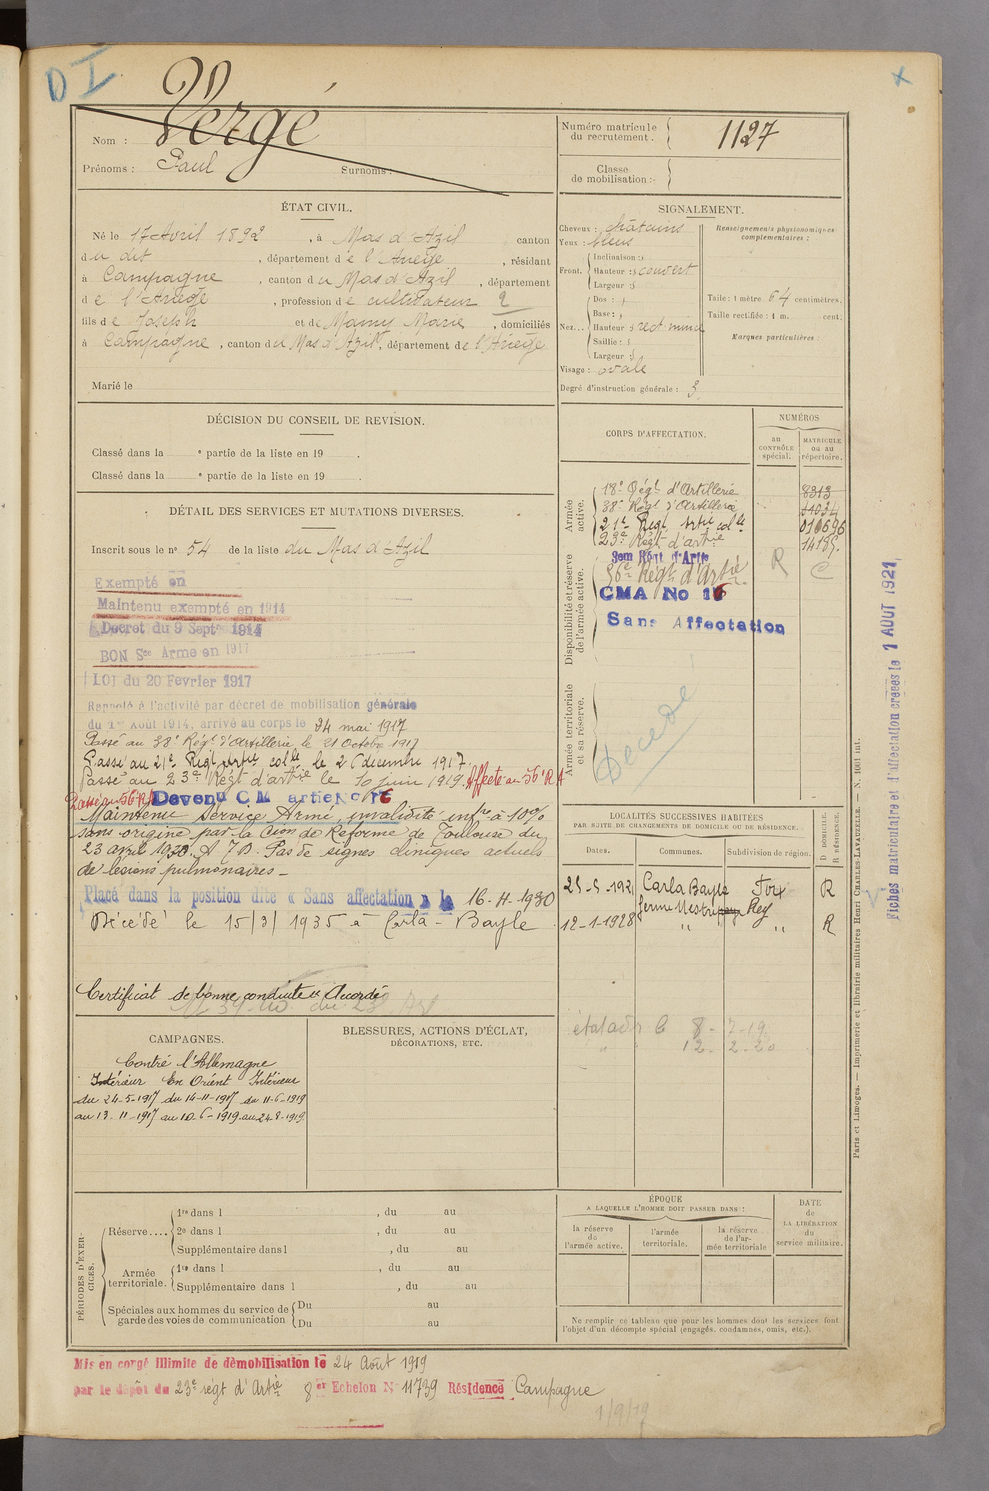 D I
Vergé
Nom :
Prénoms : Paul Surnoms :
Numéro matricule du recrutement. 1127
Classe de mobilisation :
ÉTAT CIVIL.
Né le 17 Avril 1892, à Mas d'Azil canton
du dit, département de l'Ariège, résidant
à Campagne, canton du Mas d'Azil, département
de l'Ariège, profession de cultivateur 2
fils de Joseph et de Mamy Marie, domiciliés
à Campagne, canton du Mas d'Azil, département de l'Ariège
Marié le
SIGNALEMENT.
Cheveux : châtains
Yeux : bleus
Front. Inclinaison :
Hauteur : couvert
Largeur :
Nez... Dos :
Base :
Hauteur : rect mince
Saillie :
Largeur :
Visage : ovale
Degré d'instruction générale : 3
Renseignements physionomiques complémentaires :
Taille : 1 mètre 64 centimètres.
Taille rectifiée : 1 m. cent.
Marques particulières :
DÉCISION DU CONSEIL DE REVISION.
Classé dans la e partie de la liste en 19 .
Classé dans la e partie de la liste en 19 .
DÉTAIL DES SERVICES ET MUTATIONS DIVERSES.
Inscrit sous le n° 54 de la liste du Mas d'Azil
Exempté en
Maintenu exempté en 1914
Décret du 9 Septre 1914
BON Sce Armé en 1917
LOI du 20 Fevrier 1917
Rappelé à l'activité par décret de mobilisation générale
du 1er Août 1914, arrivé au corps le 24 mai 1917
Passé au 38e Régt d'Artillerie le 21 Octobre 1917
Passé au 21e Régt Artie colle le 2 décembre 1917.
Passé au 23e Régt d'artie le 10 juin 1919. Affecté au 56e R A
Passé au 56e R.A. Devenu C M artie No 16
Maintenu Service Armé, invalidité infre à 10%
sans origine par la Cion de Réforme de Toulouse du
23 avril 1930. A 7 B. Pas de signes cliniques actuels
de lésions pulmonaires —
Placé dans la position dite « Sans affectation » le 16-4-1930
Décédé le 15/3/1935 à Carla-Bayle
Certificat de bonne conduite "Accordé"
CORPS D'AFFECTATION.
NUMÉROS
au CONTRÔLE spécial.
MATRICULE ou au répertoire.
Armée active.
18e Régt d'Artillerie 8313
38e Régt d'Artillerie
21e Régt Artie colle 010696
23e Régt d'artie 14185.
Disponibilité et réserve de l'armée active.
3em Régt d'Artie
56e Régt d'Artie R C
CMA No 16
Sans Affectation
Armée territoriale et sa réserve.
Décédé
LOCALITÉS SUCCESSIVES HABITÉES
PAR SUITE DE CHANGEMENTS DE DOMICILE OU DE RÉSIDENCE.
Dates. Communes. Subdivision de région. D DOMICILE. R RÉSIDENCE.
Carla Bayle Foix R
12-1-1928 " " R
CAMPAGNES.
Contre l'Allemagne
Intérieur En Orient Intérieur
du 24-5-1917 du 14-11-1917 du 11-6-1919
au 13-11-1917 au 10-6-1919 au 24-8-1919
BLESSURES, ACTIONS D'ÉCLAT, DÉCORATIONS, ETC.
8-7-19
12-2-20
PÉRIODES D'EXERCICES.
Réserve.... 1re dans l , du au
2e dans l , du au
Supplémentaire dans l , du au
Armée territoriale. 1re dans l , du au
Supplémentaire dans l , du au
Spéciales aux hommes du service de garde des voies de communication Du au
Du au
ÉPOQUE
A LAQUELLE L'HOMME DOIT PASSER DANS :
la réserve de l'armée active.
l'armée territoriale.
la réserve de l'armée territoriale
DATE de LA LIBÉRATION du service militaire.
Ne remplir ce tableau que pour les hommes dont les services font
l'objet d'un décompte spécial (engagés, condamnés, omis, etc.).
Mis en congé illimité de démobilisation le 24 Août 1919
par le dépôt du 23e régt d'Artie 8er Echelon N° 11739 Résidence Campagne
1/9/19
Fiches matriculaire et d'affectation créées le 1 AOUT 1921
Paris et Limoges. — Imprimerie et librairie militaires Henri CHARLES-LAVAUZELLE. — N. 1001 int.